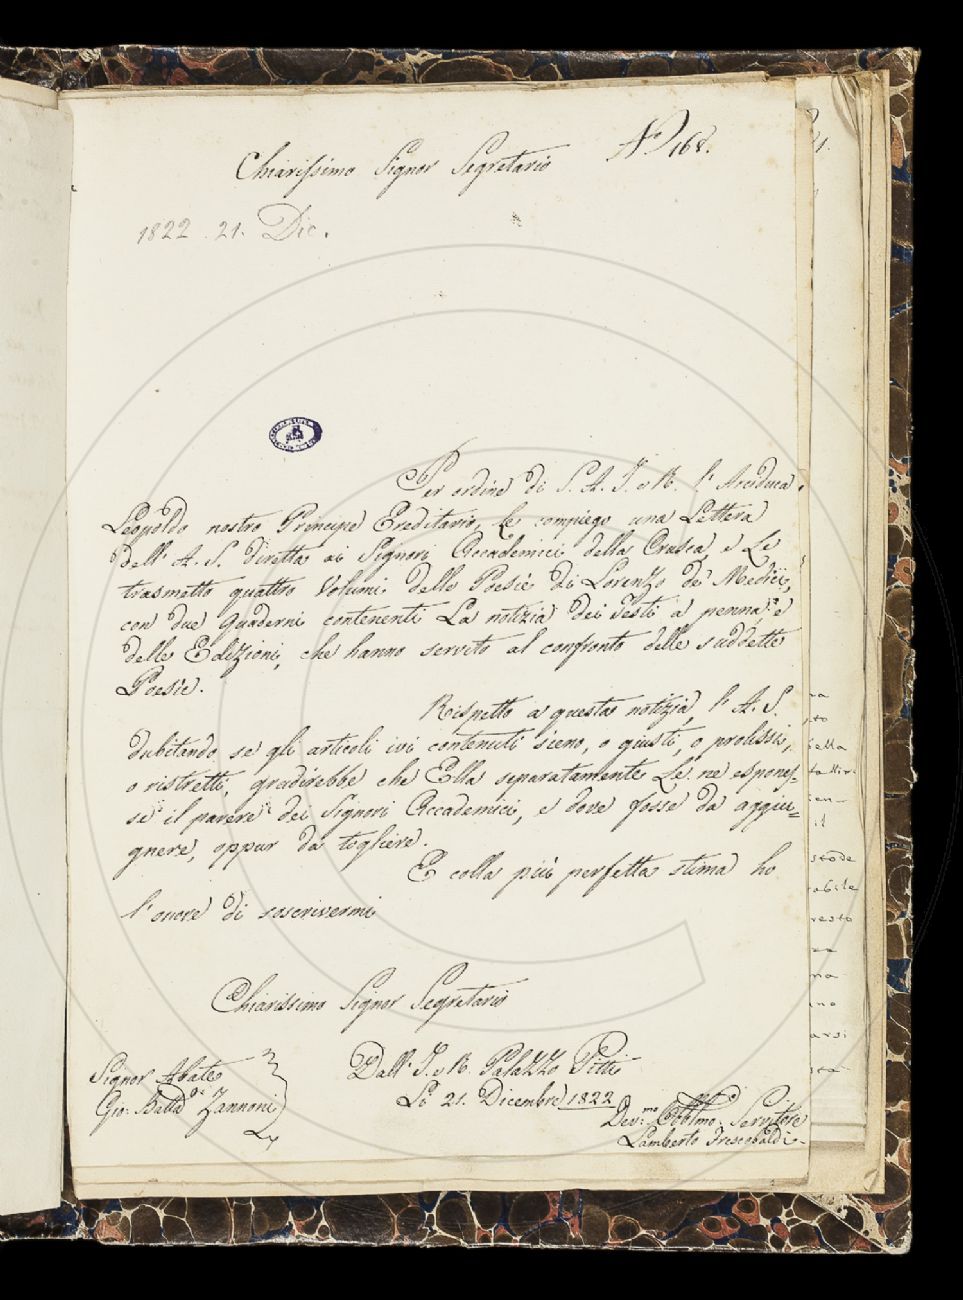 Nº 168.
Chiarissimo Signor Segretario
1822. 21. Dic.
Per ordine di S. A. I. e R. l'Arciduca
Leopoldo nostro Principe Ereditario, Le compiego una Lettera
dell'A. S. diretta ai Signori Accademici della Crusca, e Le
trasmetto quattro Volumi delle Poesie di Lorenzo de' Medici,
con due Quaderni contenenti La notizia dei Testi a penna, e
delle Edizioni, che hanno servito al confronto delle suddette
Poesie.
Rispetto a questa notizia, l'A. S.
dubitando se gli articoli ivi contenuti sieno, o giusti, o prolissi,
o ristretti, gradirebbe che Ella separatamente Le ne espones=
se il parere dei Signori Accademici, e dove fosse da aggiu=
gnere, oppur da togliere.
E colla più perfetta stima ho
l'onore di soscrivermi
Chiarissimo Signor Segretario
Signor Abate
Gio: Batta Zannoni
Dall'I. e R. Palazzo Pitti
Li 21. Dicembre 1822
Dev.mo Obblmo. Servitore
Lamberto Frescobaldi